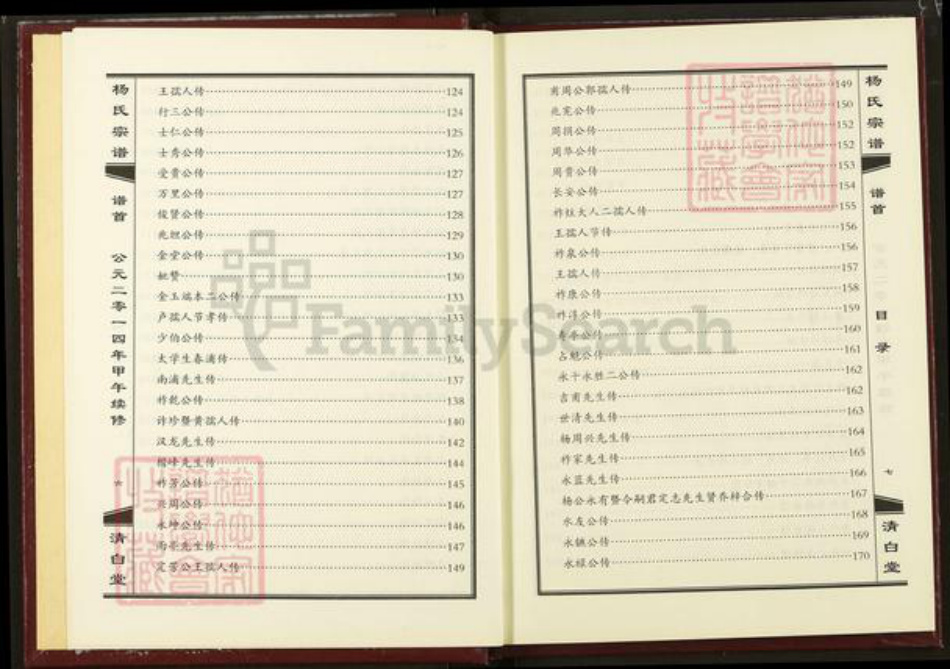 杨氏宗谱
谱首
公元二零一四年甲午续修
六
清白堂
王孺人传 124
行三公传 124
士仁公传 125
士秀公传 126
受贵公传 127
万里公传 127
俊贤公传 128
兆坦公传 129
金堂公传 130
妣贤 130
金玉端本二公传 133
卢孺人节孝传 133
少伯公传 134
太学生春浦传 136
南浦先生传 137
祚乾公传 138
诈珍暨黄孺人传 140
汉龙先生传 142
楷峰先生传 144
祚芳公传 145
兴周公传 146
永坤公传 146
雨亭先生传 147
定芳公王孺人传 149
甫周公郭孺人传 149
兆宽公传 150
周损公传 152
周华公传 152
周贵公传 153
长安公传 154
祚炷大人二孺人传 155
王孺人节传 156
祚泉公传 156
王孺人传 157
祚康公传 158
祚淳公传 159
寿亭公传 160
占魁公传 161
永干永胜二公传 162
吉甫先生传 162
世清先生传 163
杨周兴先生传 164
祚家先生传 165
永蓝先生传 166
杨公永有暨令嗣君定志先生贤乔梓合传 167
永友公传 168
永镳公传 169
永禄公传 170
杨氏宗谱
谱首
目录
七
清白堂
FamilySearch